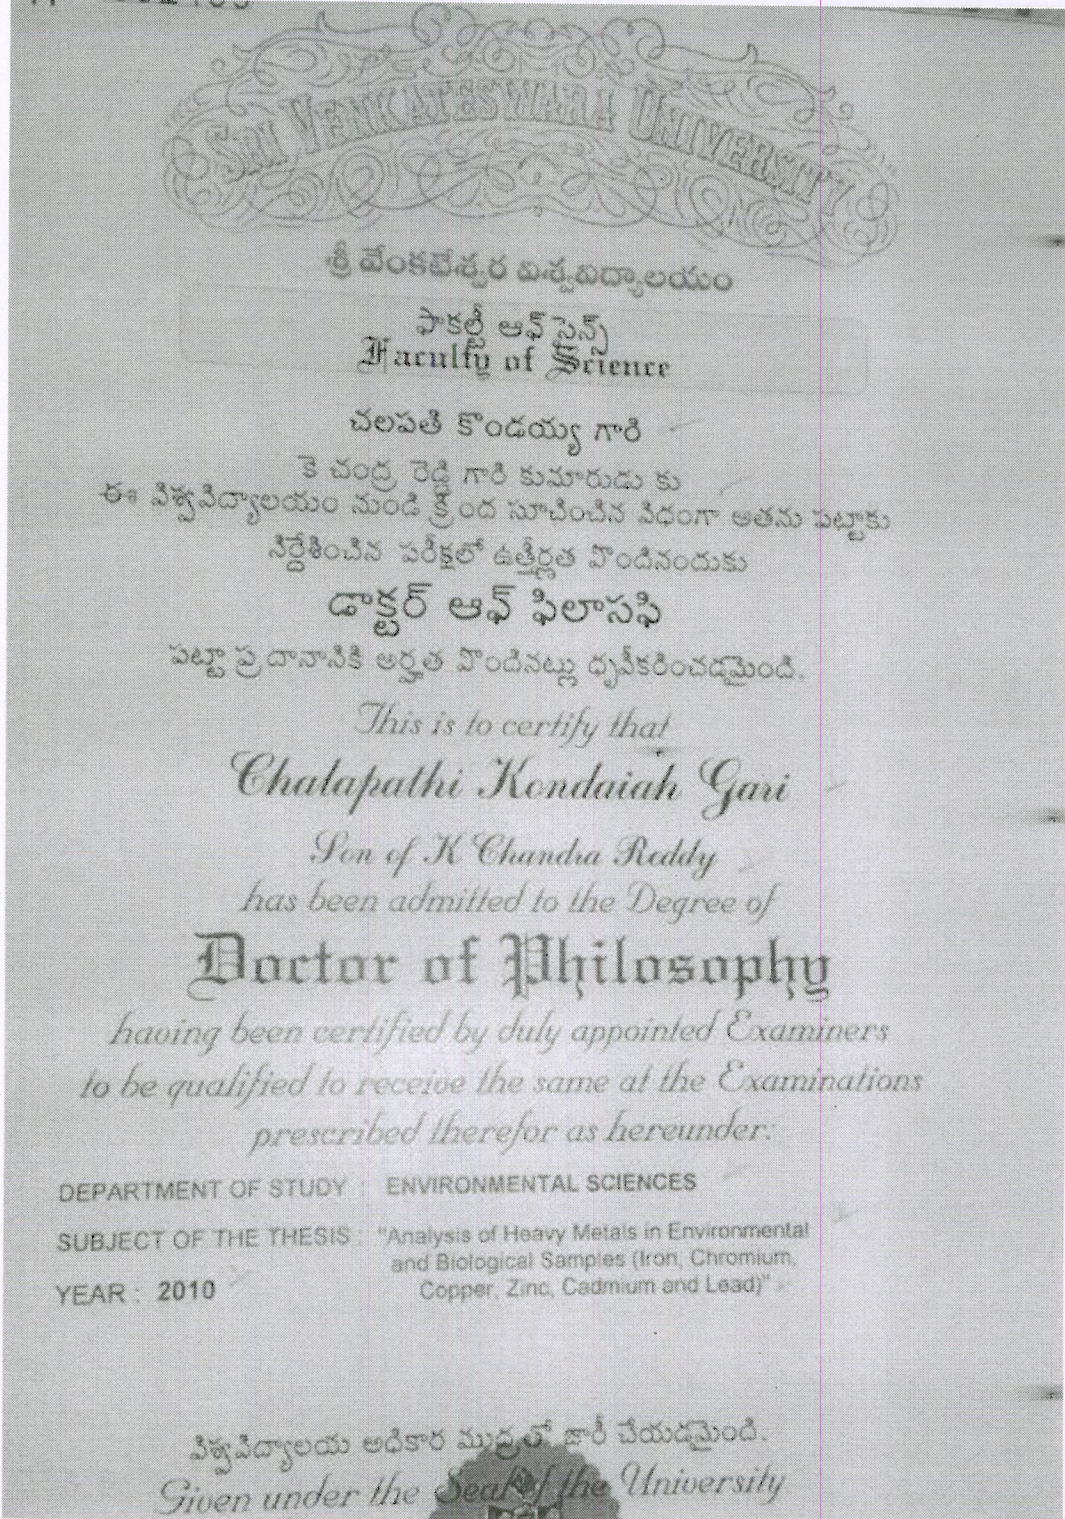 SRI VENKATESWARA UNIVERSITY
శ్రీ వేంకటేశ్వర విశ్వవిద్యాలయం
ఫాకల్టీ ఆఫ్ సైన్స్
Faculty of Science
చలపతి కొండయ్య గారి
కె చంద్ర రెడ్డి గారి కుమారుడు కు
ఈ విశ్వవిద్యాలయం నుండి క్రింద సూచించిన విధంగా అతను పట్టాకు
నిర్దేశించిన పరీక్షలో ఉత్తీర్ణత పొందినందుకు
డాక్టర్ ఆఫ్ ఫిలాసఫి
పట్టా ప్రదానానికి అర్హత పొందినట్లు ధృవీకరించడమైంది.
This is to certify that
Chalapathi Kondaiah Gari
Son of K Chandra Reddy
has been admitted to the Degree of
Doctor of Philosophy
having been certified by duly appointed Examiners
to be qualified to receive the same at the Examinations
prescribed therefor as hereunder:
DEPARTMENT OF STUDY : ENVIRONMENTAL SCIENCES
SUBJECT OF THE THESIS : "Analysis of Heavy Metals in Environmental
and Biological Samples (Iron, Chromium,
Copper, Zinc, Cadmium and Lead)"
YEAR : 2010
విశ్వవిద్యాలయ అధికార ముద్రతో జారీ చేయడమైంది.
Given under the Seal of the University